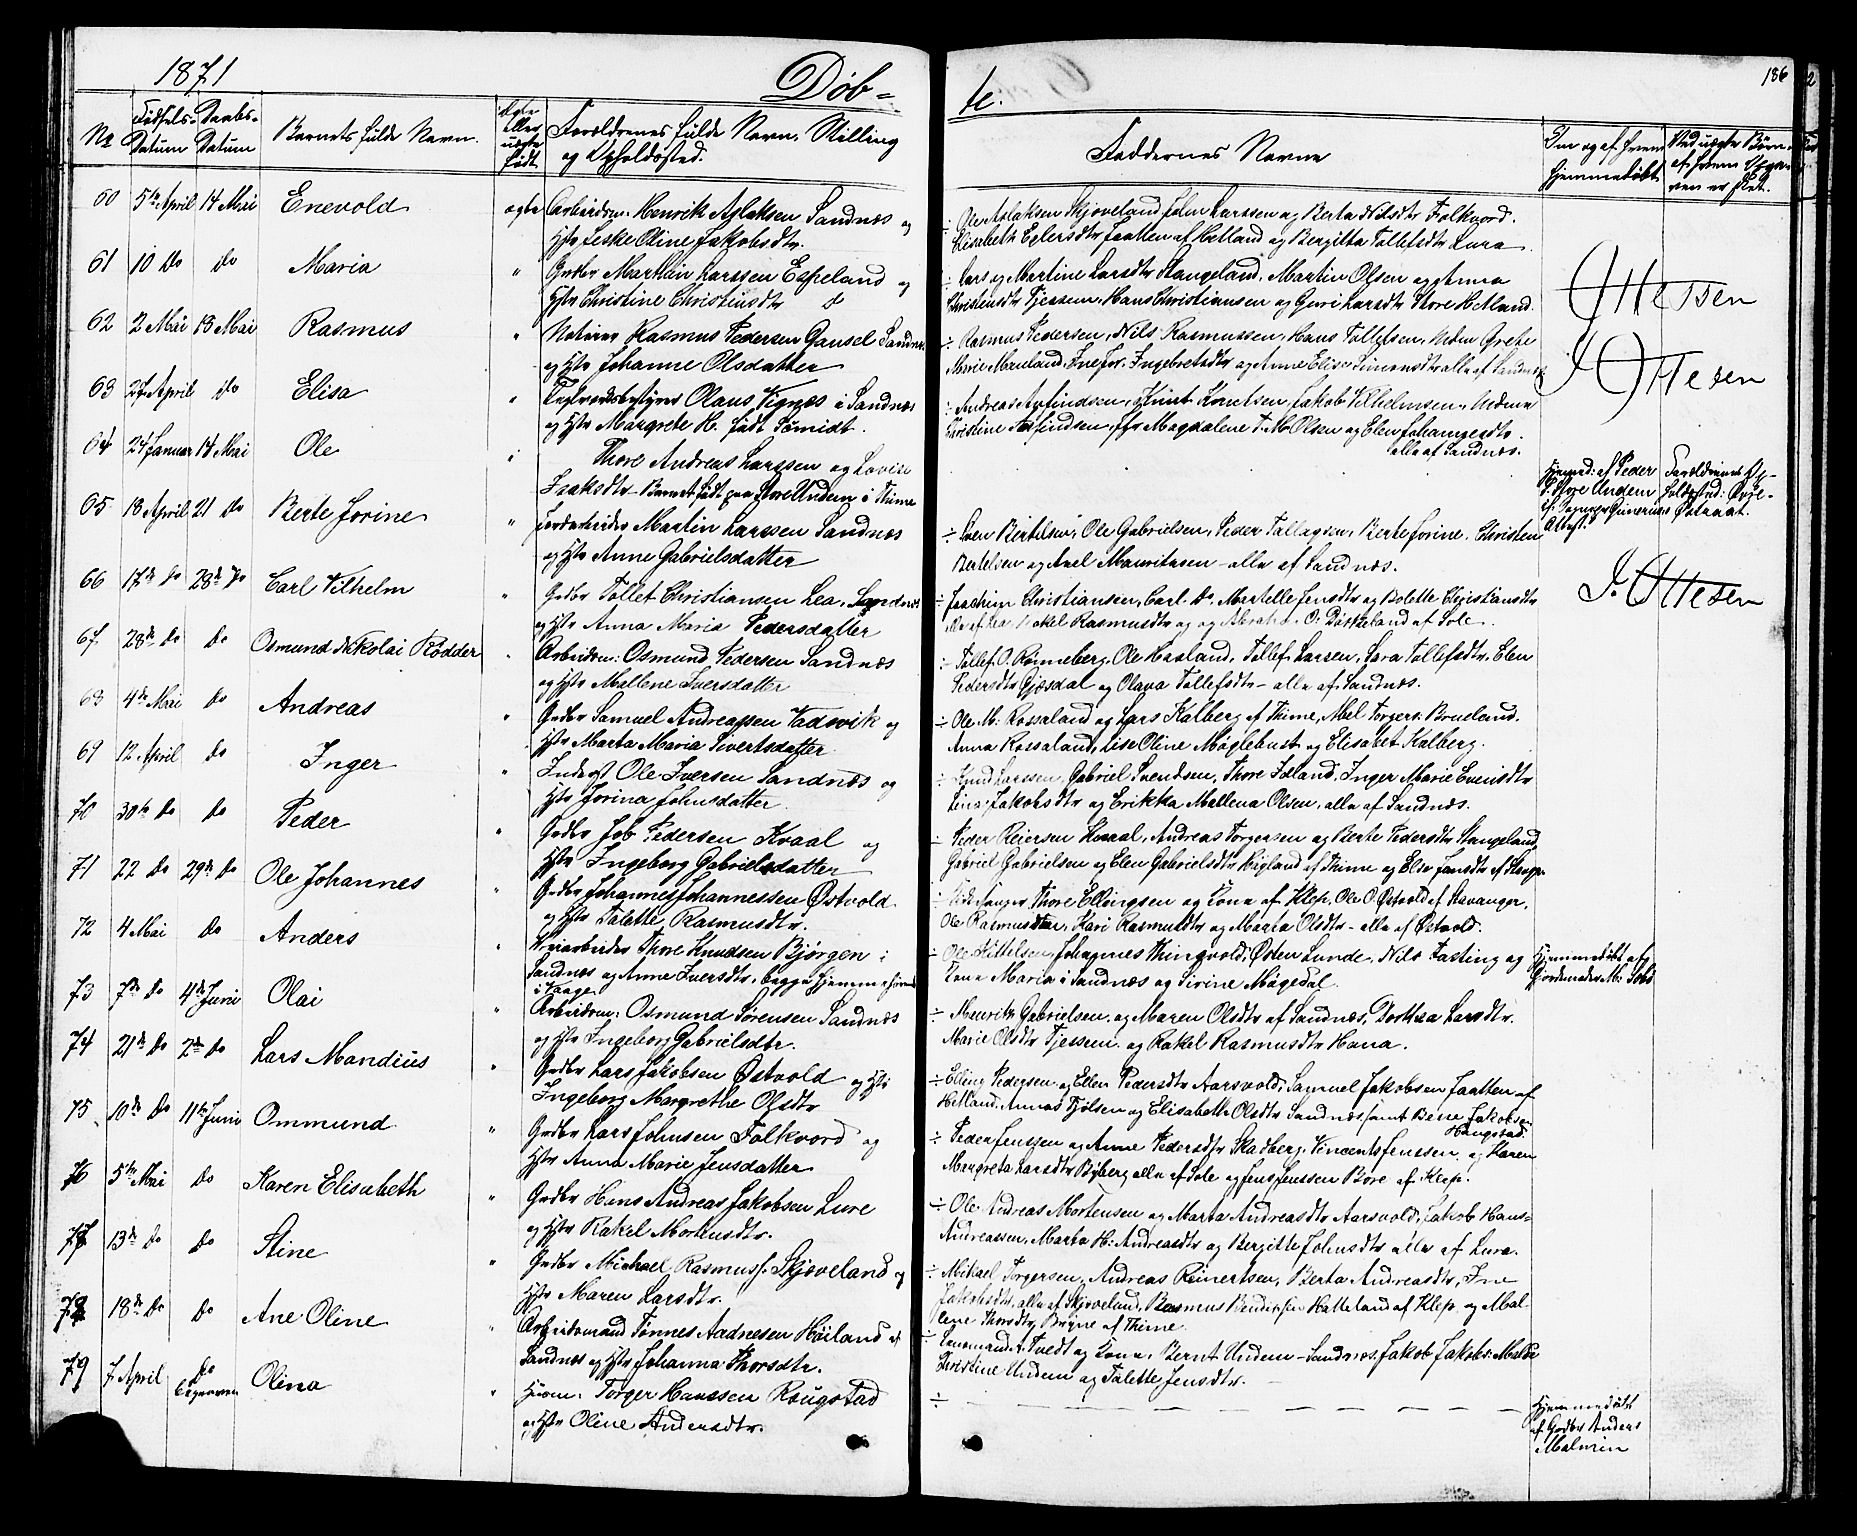 1871
Døb=
te.
186
No
Fødsels-Datum
Daabs-Datum
Barnets fulde Navn.
Ægte eller uægte født
Forældrenes fulde Navn, Stilling
og Opholdssted.
Faddernes Navne
Om og af hvem
hjemmedøbt.
60 5te April 14 Mai Enevold ægte Arbeidsm: Henrik Aslaksen Sandnæs og
Hstr Jeske Oline Jakobsdtr.
÷ Ole Aslaksen Skjæveland, John Larssen og Berta Nilsdtr Folkvord.
Elisabeth Eylersdtr Jaatten af Hetland og Bergitta Tollefsdtr Lura
61 10 do do Maria " Grdbr Marthin Larssen Espeland og
Hstr Christine Christiusdtr d
÷ Lars og Martine Larsdtr Stangeland, Martin Olsen og Anna
Christensdtr Tjessem, Hans Christiansen og Guri Larsdtr Store Hetland.
Ottesen
62 2 Mai 13 Mai Rasmus " Notiner Rasmus Pedersen Gausel Sandnæs
og Hstr Johanne Olsdatter
÷ Rasmus Pedersen, Nils Rasmussen, Hans Tollefsen, Grete
Marie Ingebretsdtr og Anne Elise Simonsdtr alle af Sandnæs
J Ottesen
63 27 April do Elisa " Teglværksbestyrer Olaus Vignæs i Sandnæs
og Hstr Margrete H. født Smidt.
÷ Andreas Arfindsen, Knut Knutsen, Jakob Vilhelmsen,
Christine Arfindsen, Magdalene T. M. Olsen og Elen Johannesdtr.
alle af Sandnæs.
64 24 Januar 14 Mai Ole " Thore Andreas Larssen og Lovise
Isaksdtr Barnet født paa Store Undem i Thime
Hjemmed: af Peder
Store Undem
Attest.
Forældrenes Op-
holdssted:
65 18 April 21 do Berte Jorine " Jordarbeider Martin Larssen Sandnæs
og Hstr Anne Gabrielsdatter
÷ Sven Bertelsen, Ole Gabrielsen, Peder Tallagsen, Berte Jorine, Christen
Bertelsen og Axel Mauritzsen - alle af Sandnæs.
66 17de do 28de do Carl Vilhelm " Grdbr Tollet Christiansen Lea, Sandnæs
og Hstr Anna Maria Pedersdatter
÷ Joachim Christiansen, Carl do, Martelle Jensdtr og Bolette Christiansdtr
Rakel Rasmusdtr og af Sole.
J. Ottesen
67 28de do do Osmund Nikolai Rødder " Arbeidsm: Osmund Pedersen Sandnæs
og Hstr Mallene Iversdatter
÷ Tollef O. Rønneberg, Ole Haaland, Tollef Larsen, Sara Tollefsdtr, Elen
Pedersdtr Gjøsdal og Olava Tollefsdtr - alle af Sandnæs.
68 4de Mai do Andreas " Grdbr Samuel Andreassen Vadsvik og
Hstr Marta Maria Sivertsdatter
÷ Ole M: Rossaland og Lars Kalberg af Thime, Abel Torgers: Brueland.
Anna Rossaland, Lise Oline Møglebust og Elisabet Kalberg.
69 12 April do Inger " Inderst Ole Iversen Sandnæs og
Hstr Jorina Johnsdatter
÷ Knud Larssen, Gabriel Svendsen, Thore Idland, Inger Marie Evensdtr
Lina Jakobsdtr og Erikka Mallena Olsen, alle af Sandnæs.
70 30te do do Peder " Grdbr Job Pedersen Kvaal og
Hstr Ingeborg Gabrielsdatter
÷ Peder Reiersen Kvaal, Andreas Torgersen og Berte Pedersdtr Stangeland,
Gabriel Gabrielsen og Elen Gabrielsdtr Høyland af Thime og Else Jonsdtr af
71 22 do 29de do Ole Johannes " Grdbr Johannes Johannessen Østvold
og Hstr Talette Rasmusdtr.
÷ Kirkesanger Thore Ellingsen og Kona af Klep, Ole O. Østvold af Stavanger,
Ole Rasmussen, Kari Rasmusdtr og Marta Olsdtr - alle af Østvold.
72 4 Mai do Anders " Veiarbeider Thore Knudsen Bjørgen i
Sandnæs og Anne Iversdtr, begge hjemmehørende
i Vaage
÷ Ole Kittelsen, Johannes Thingvold, Østen Lunde, Nils Fasting og
Kone Maria i Sandnæs og Sirine Møgedal.
Hjemmedøbt af
Gjordemoder M:
73 7de do 4de Juni Olai " Arbeidsm: Osmund Sørensen Sandnæs
og Hstr Ingeborg Gabrielsdtr.
÷ Henrik Gabrielsen og Maren Olsdtr af Sandnæs, Dorthea Larsdtr.
Marie Olsdtr Tjessem og Rakel Rasmusdtr Hana.
74 21de do 2de do Lars Mandius " Grdbr Lars Jakobsen Østvold og Hstr
Ingeborg Margrethe Olsdtr
÷ Elling Pedersen og Ellen Pedersdtr Aarsvold, Samuel Jakobsen Jaatten af
Hetland, Annas Fjølsen og Elisabeth Olsdtr Sandnæs samt Bene Jakobsen
Haugstad.
75 10de do 11te Juni Ommund " Grdbr Lars Johnsen Folkvord og
Hstr Anna Marie Jensdatter
÷ Peder Jenssen og Anne Pedersdtr Skadberg, Vincents Jenssen og Karen
Margreta Larsdtr Byberg alle af Sole og Jens Jenssen Bore af Klep.
76 5te Mai do Karen Elisabeth " Grdbr Hans Andreas Jakobsen Lure
og Hstr Rakel Mortensdtr.
÷ Ole Andreas Mortensen og Marta Andreasdtr Aarsvold, Jakob Hans-
Andreassen, Marta H: Andreasdtr og Bergitte Johnsdtr alle af Lura.
77 13de do do Stine " Grdbr Michael Rasmuss. Skjæveland og
Hstr Maren Larsdtr.
÷ Mikael Torgersen, Andreas Reinertsen, Berta Andreasdtr, Ine
Jakobsdtr, alle af Skjæveland, Rasmus Hatteland af Klep og Mal-
lene Thorsdtr Bryne af Thime.
78 18de do do Ane Oline " Arbeidsmand Tønnes Aadnesen Høiland af
Sandnæs og Hstr Johanna Thorsdtr.
÷ Lensmand A. Tvedt og Kone, Bernt Undem - Sandnæs, Jakob Jakobs: Malde
Christine Undem og Talette Jensdtr.
79 7 April do Olina " Huusm: Torger Hanssen Raugstad
og Hstr Oline Andersdtr.
÷ — — — — — — — — —
Hjemmedøbt
af Grdbr Anders
Malmin